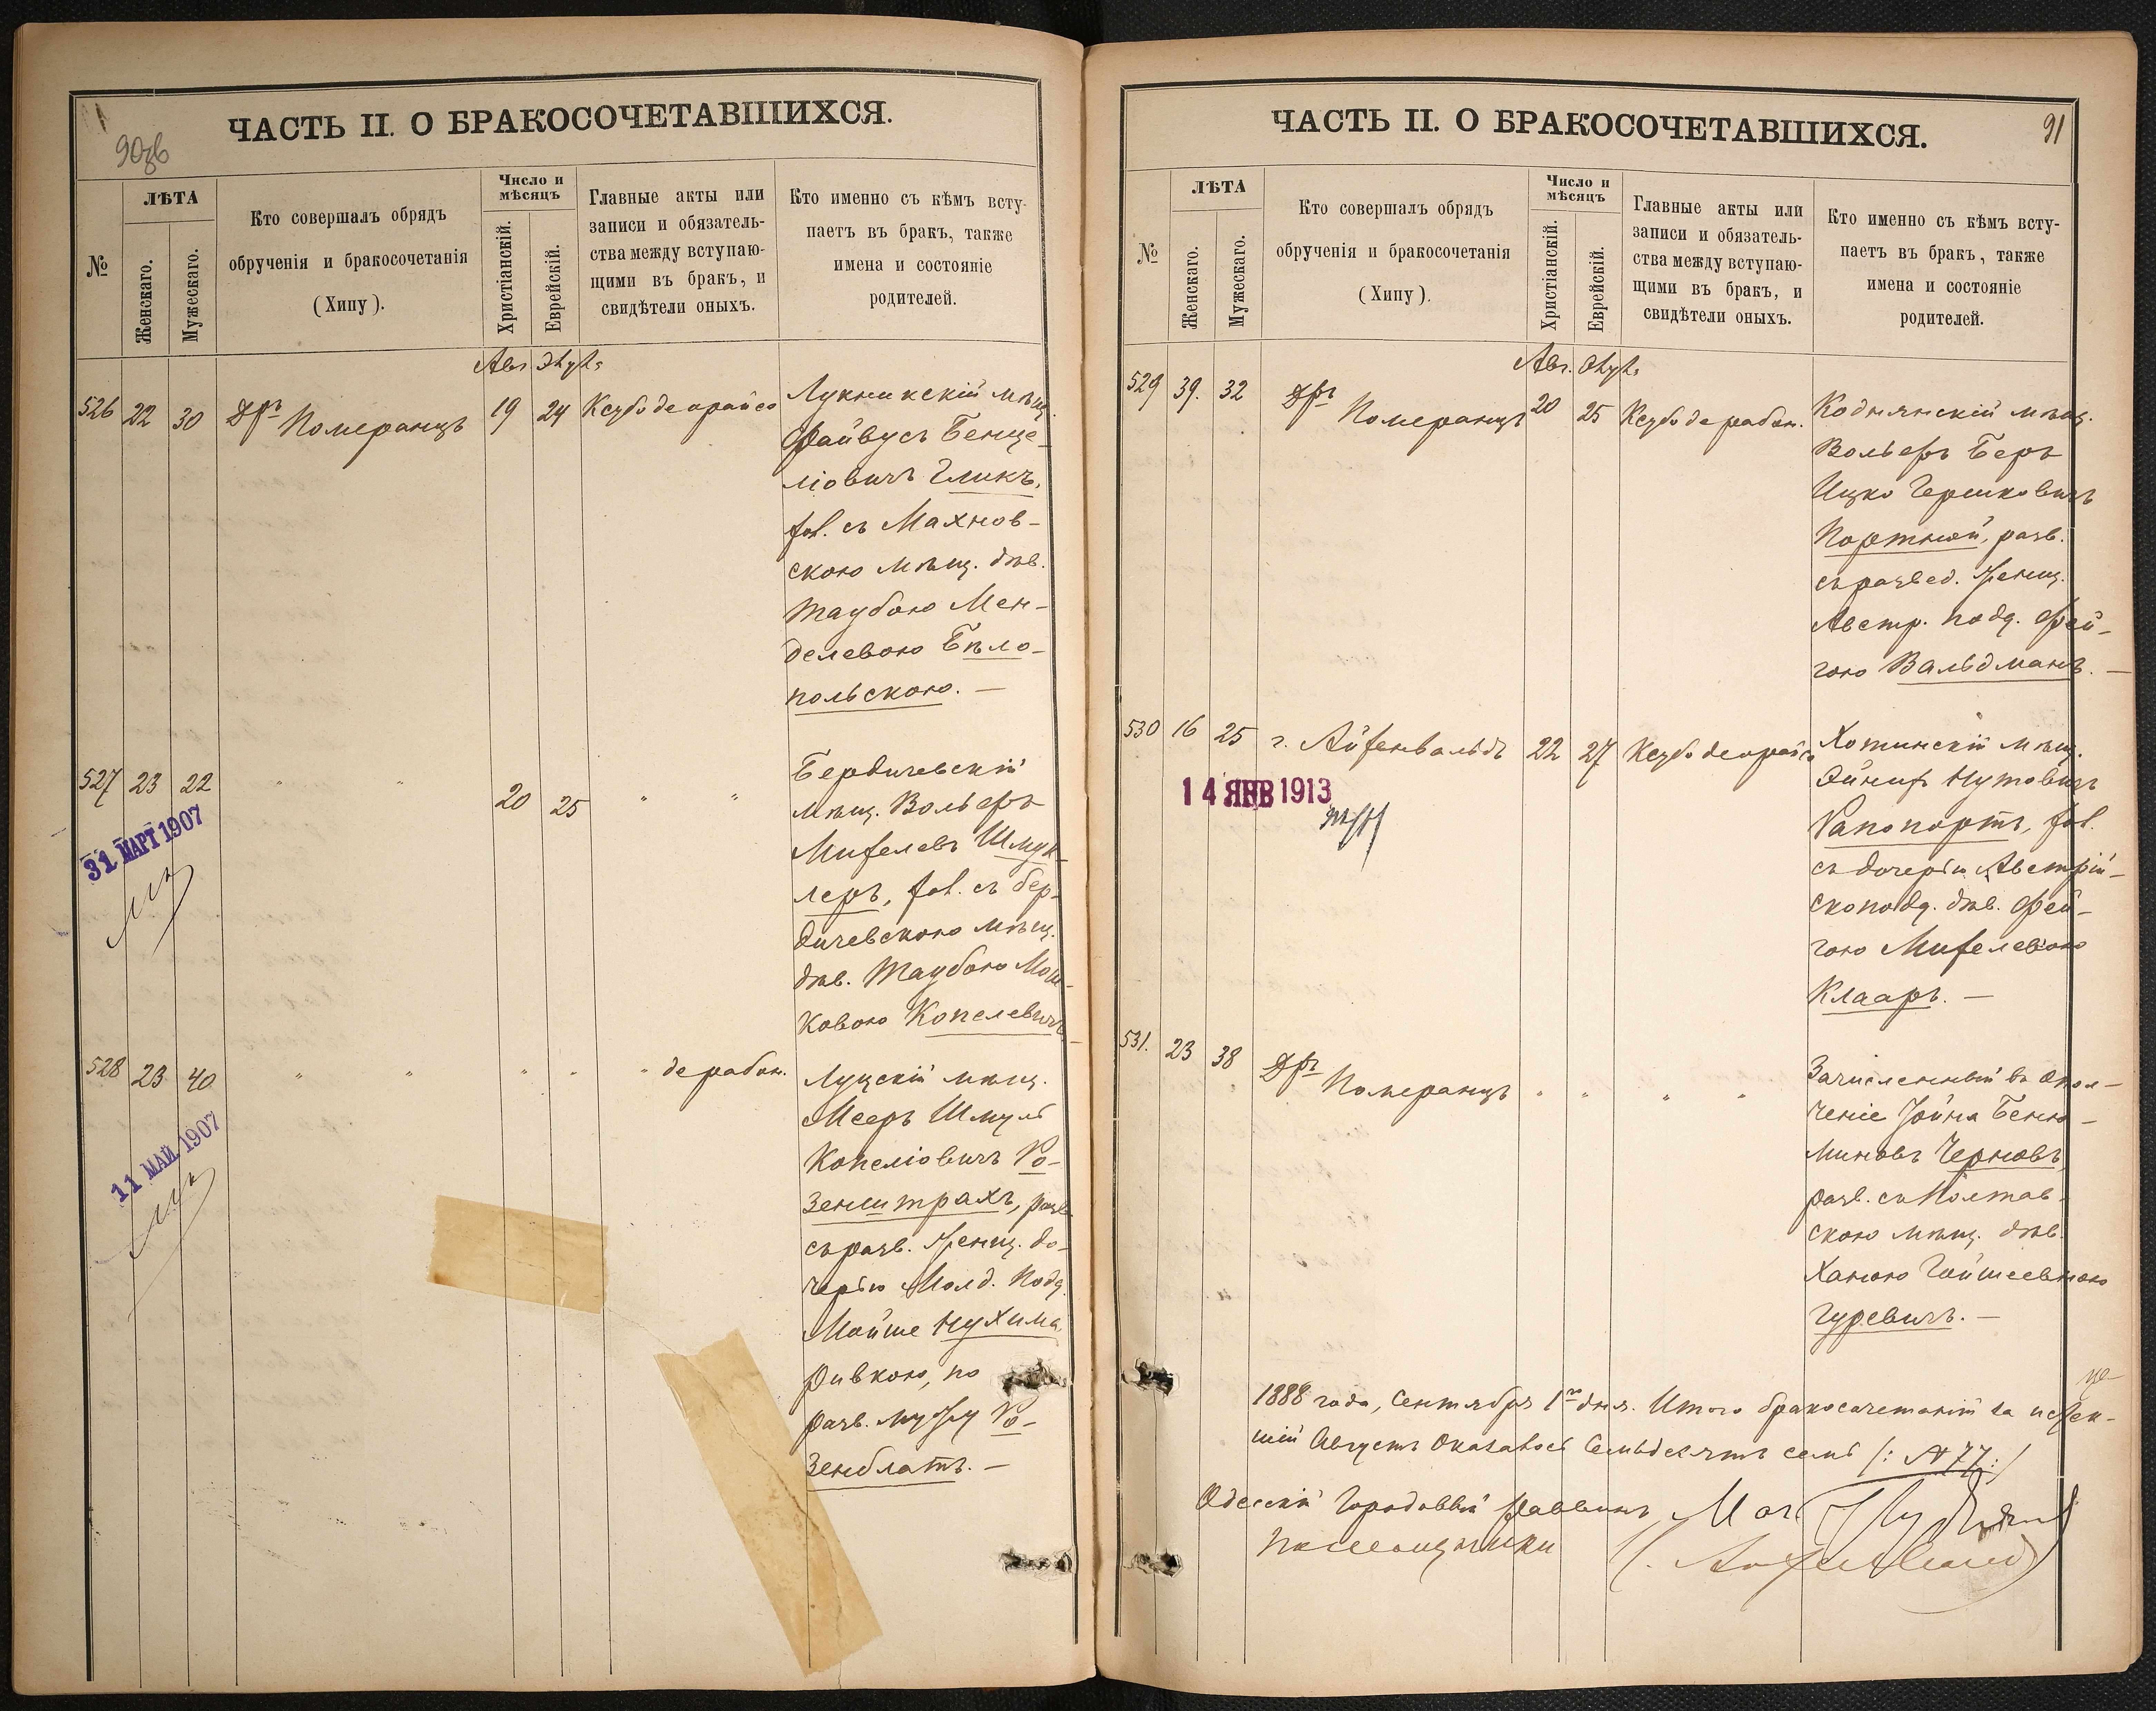 ЧАСТЬ II. О БРАКОСОЧЕТАВШИХСЯ.
90зв
№
ЛѢТА
Женскаго.
Мужескаго.
Кто совершалъ обрядъ
обрученія и бракосочетанія
(Хипу).
Число и
мѣсяцъ
Христіанскій.
Еврейскій.
Главные акты или
записи и обязатель-
ства между вступаю-
щими въ бракъ, и
свидѣтели оныхъ.
Кто именно съ кѣмъ всту-
паетъ въ бракъ, также
имена и состояніе
родителей.
Авг. Элулъ
526 22 30 Др. Померанцъ 19 24 Ксубо деорайсо
Лукникскій мѣщ.
Файвусъ Бенце-
ліовичъ Гликъ,
хол. съ Махнов-
скою мѣщ. дѣв.
Таубою Мен-
делевою Бѣло-
польскою. —
527 23 22 " " 20 25 " "
Бердичевскій
мѣщ. Вольфъ
Михелевъ Шмук-
леръ, хол. съ бер-
дичевскою мѣщ.
дѣв. Таубою Мош-
ковою Копелевичъ
31 МАРТ 1907
528 23 40 " " " " " дерабон.
Луцскій мѣщ.
Мееръ Шмуль
Копеліовичъ Ро-
зенштрахъ, разв.
съ разв. женщ. до-
черью Молд. подд.
Мойше Нухима
Ривкою, по
разв. мужу Ро-
зенблатъ. —
11 МАЙ 1907
ЧАСТЬ II. О БРАКОСОЧЕТАВШИХСЯ.
91
№
ЛѢТА
Женскаго.
Мужескаго.
Кто совершалъ обрядъ
обрученія и бракосочетанія
(Хипу).
Число и
мѣсяцъ
Христіанскій.
Еврейскій.
Главные акты или
записи и обязатель-
ства между вступаю-
щими въ бракъ, и
свидѣтели оныхъ.
Кто именно съ кѣмъ всту-
паетъ въ бракъ, также
имена и состояніе
родителей.
Авг. Элулъ
529 39. 32 Др. Померанцъ 20 25 Ксубо дерабон.
Коднянскій мѣщ.
Вольфъ Беръ
Ицко Гершковичъ
Портной, разв.
съ развед. женщ.
Австр. подд. Фей-
гою Вальдманъ. —
530 16 25 г. Айхенвальдъ 22 27 Ксубо деорайсо
Хотинскій мѣщ.
Эйнихъ Нутовичъ
Рапопортъ, хол.
съ дочерью Австрій-
ско подд. дѣв. Фей-
гою Михелевою
Клааръ. —
14 ЯНВ 1913
531. 23 38 Др. Померанцъ " " " "
Зачисленный въ Опол-
ченіе Іойна Беню-
миновъ Черновъ,
разв. съ Полтав-
скою мѣщ. дѣв.
Ханою Гойшеевною
Гуревичъ. —
1888 года, Сентября 1го дня. Итого бракосочетаній за истек-
шій Августъ оказалось Семьдесятъ семь /: №77 :/
Одесскій Городовый Раввинъ
Помощники